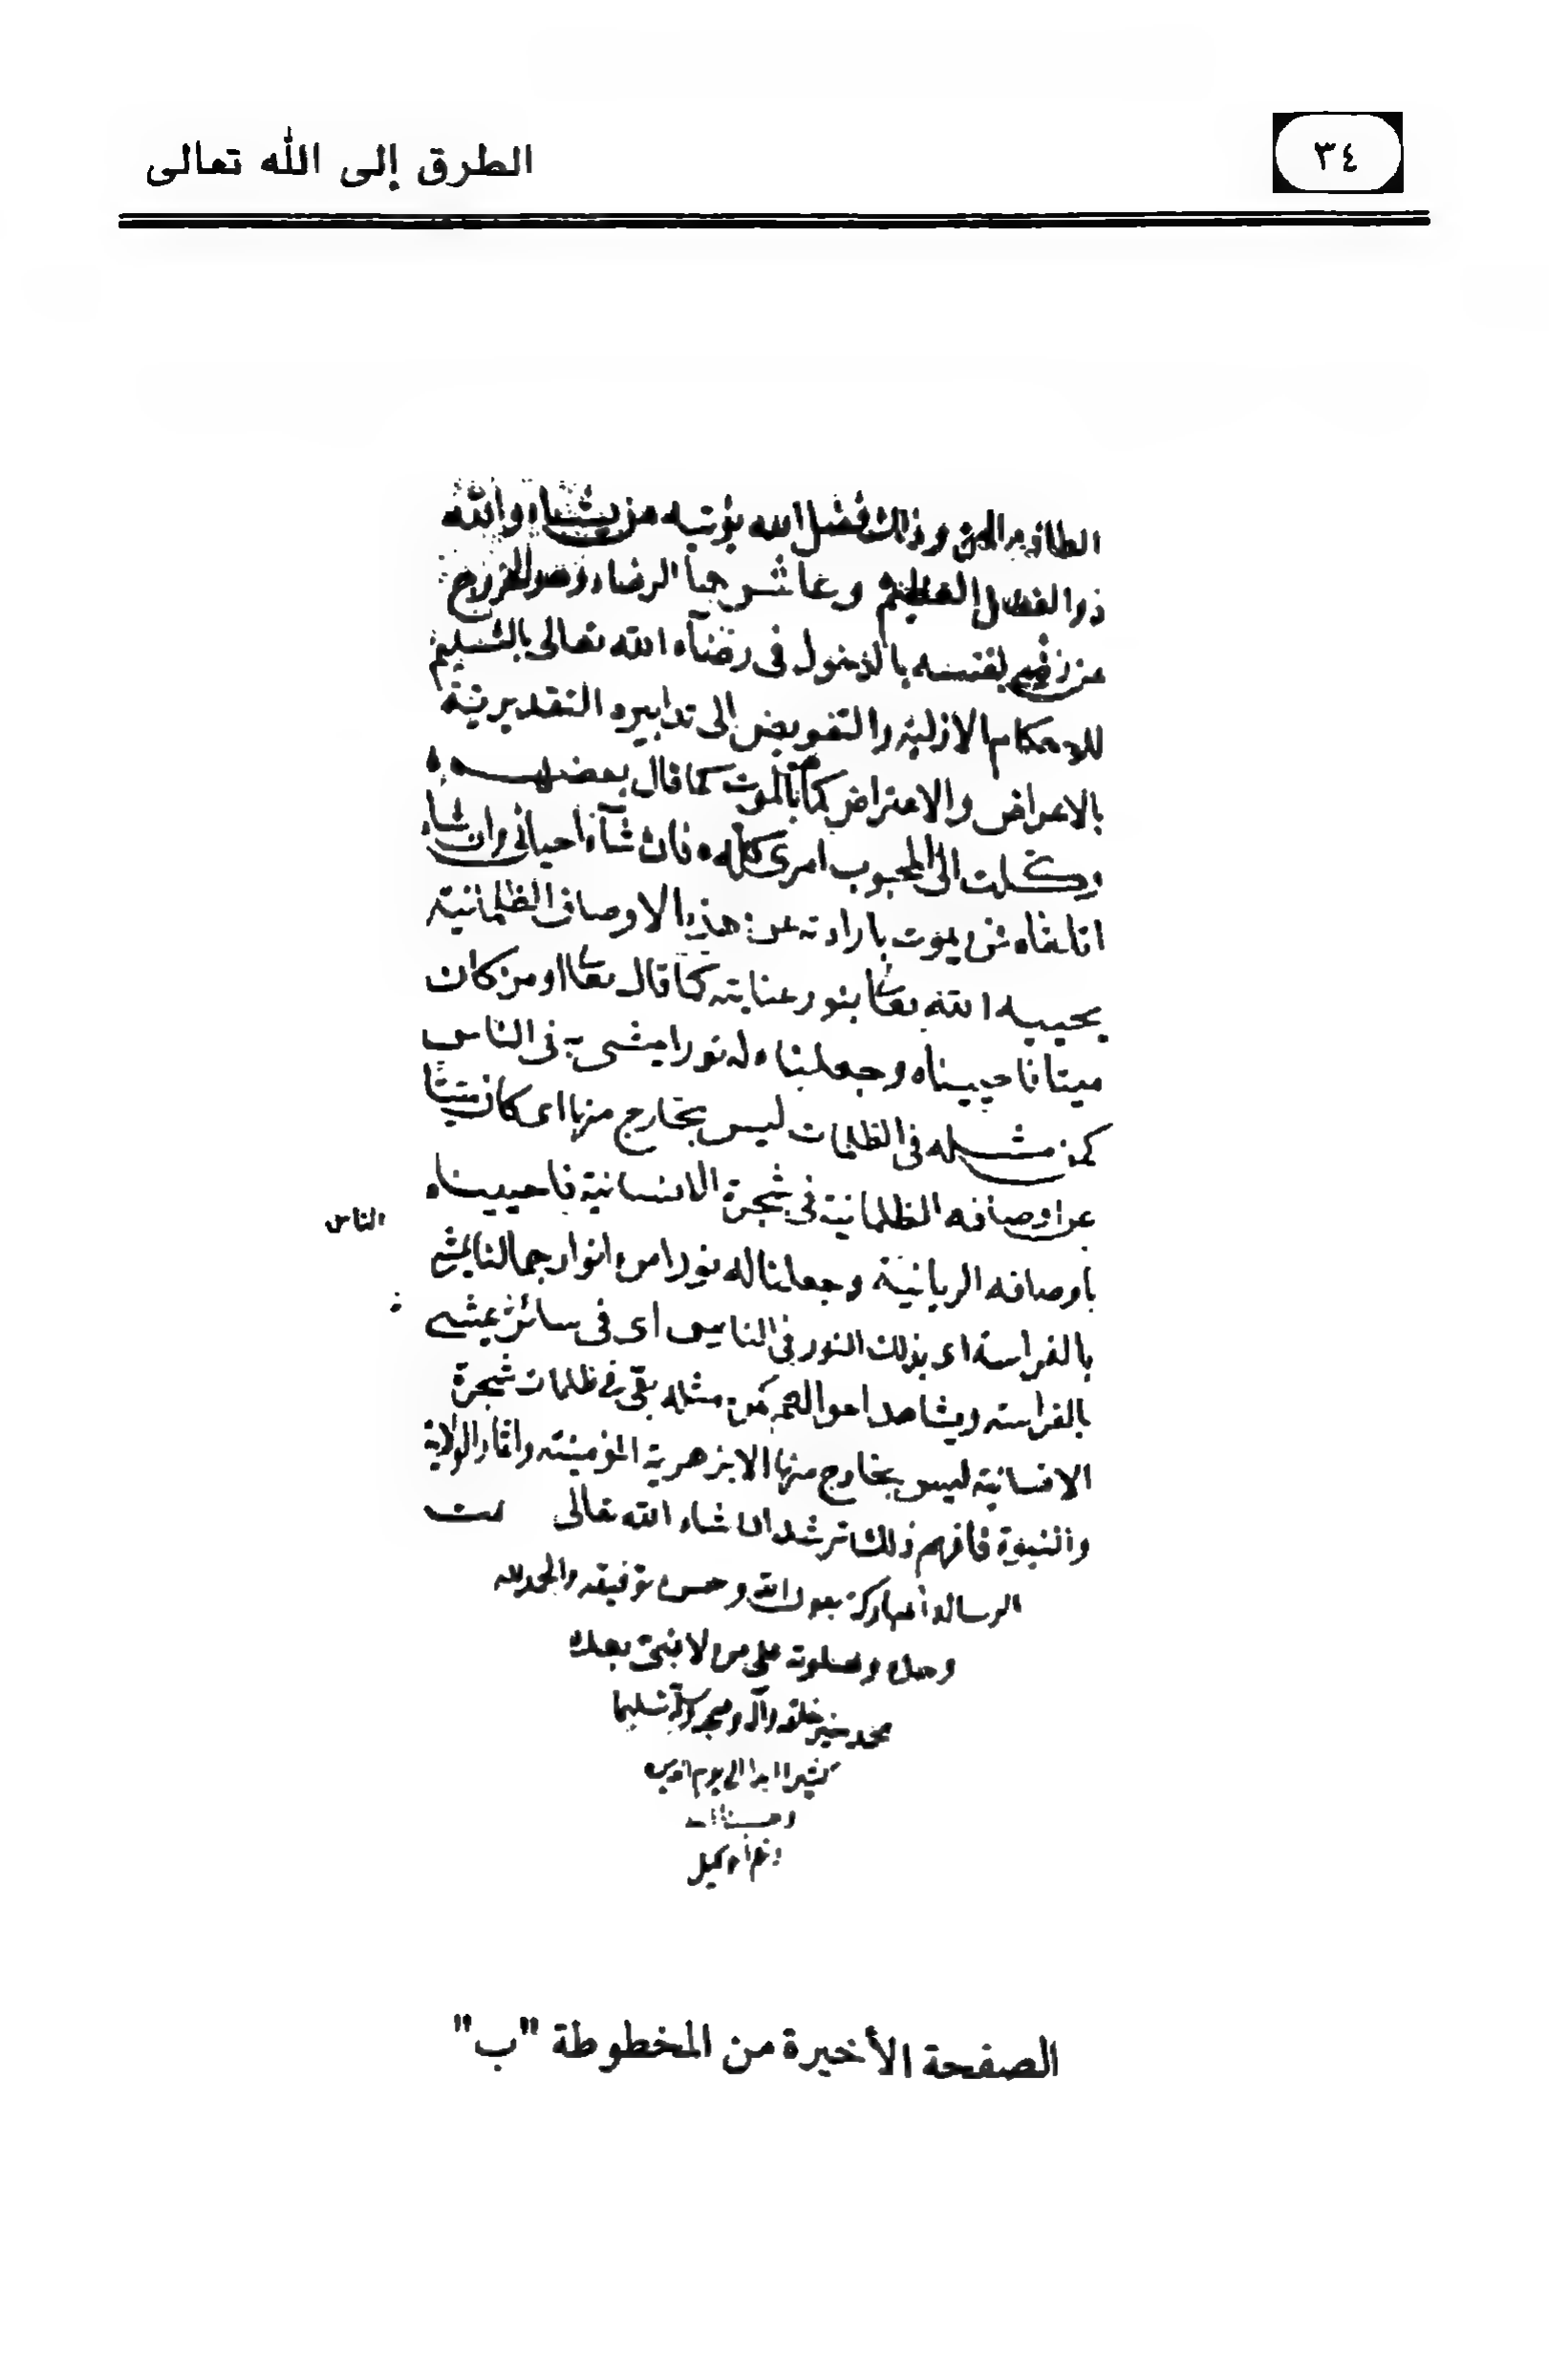 ٣٤
الطرق إلى الله تعالى
وذلك فضل الله يؤتيه من يشاء والله
ذوالفضل العظيم وعاشرها الرضاء وهو الخروج
عن رضى نفسه بالدخول فى رضآء الله تعالى بالتسليم
للاحكام الازلية والتفويض الى تدابيره التقديرية
بالاعراض والاعتراض كما بالموت كما قال بعضهم
وكلت الى المحبوب امرى كله فان شآء احيانى وان شاء
اتلفا فمن يموت بارادته عن هذه الاوصاف الظلمانية
يحييه الله تعا بنور عنايته كما قال تعا اومن كان
ميتا فاحييناه وجعلنا له نورا يمشى به فى الناس
كمن مثله فى الظلمات ليس بخارج منها اى كان ميتا
عن اوصافه الظلمانية فى شجرة الانسانية فاحييناه
باوصافه الربانية وجعلنا له نورا من انوار جمالنا يمشى
الناس
بالفراسة اى بذلك النور فى الناس اى فى سائر يمشى
بالفراسة ويشاهد احوالهم كمن مثله بقى فى ظلمات شجرة
الانسانية ليس بخارج منها لا بزهرية المؤمنية واثمار الولاية
والنبوة فافهم ذلك ترشد ان شاء الله تعالى تمت
الرسالة المباركة بعون الله وحسن توفيقه والحمد لله
وحده وصلوته على من لا نبى بعده
محمد خير خلقه وآله وصحبه وسلم تسليما
كثيرا ابدا الى يوم الدين
وحسبنا الله
ونعم الوكيل
الصفحة الأخيرة من المخطوطة "ب"